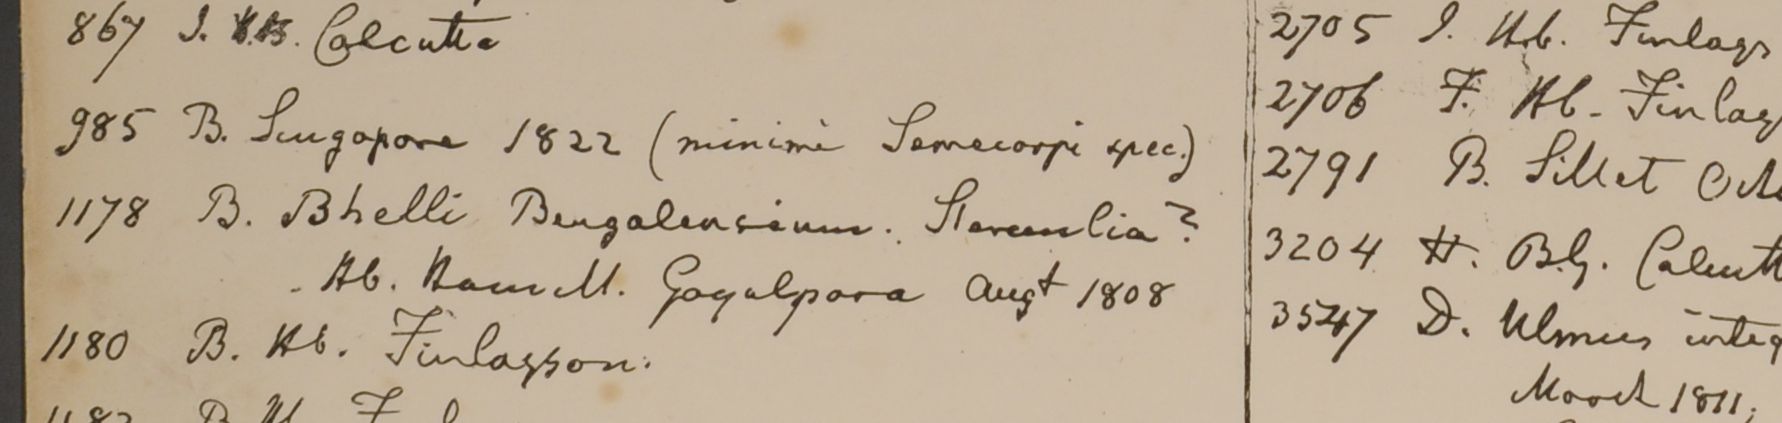 867 I. H.B. Calcutta
985 B. Singapore 1822 (minimè Semecarpi spec.)
1178 B. Bhelli Bengalensium. Sterculia?
Hb. Hamill. Goyalpara Augt 1808
1180 B. Hb. Finlayson.
2705 I. Hb. Finlays
2706 F. Hb. Finlay
2791 B. Sillet
3204 H. B.g. Calcutt
3547 D. Ulmus integ
March 1811,